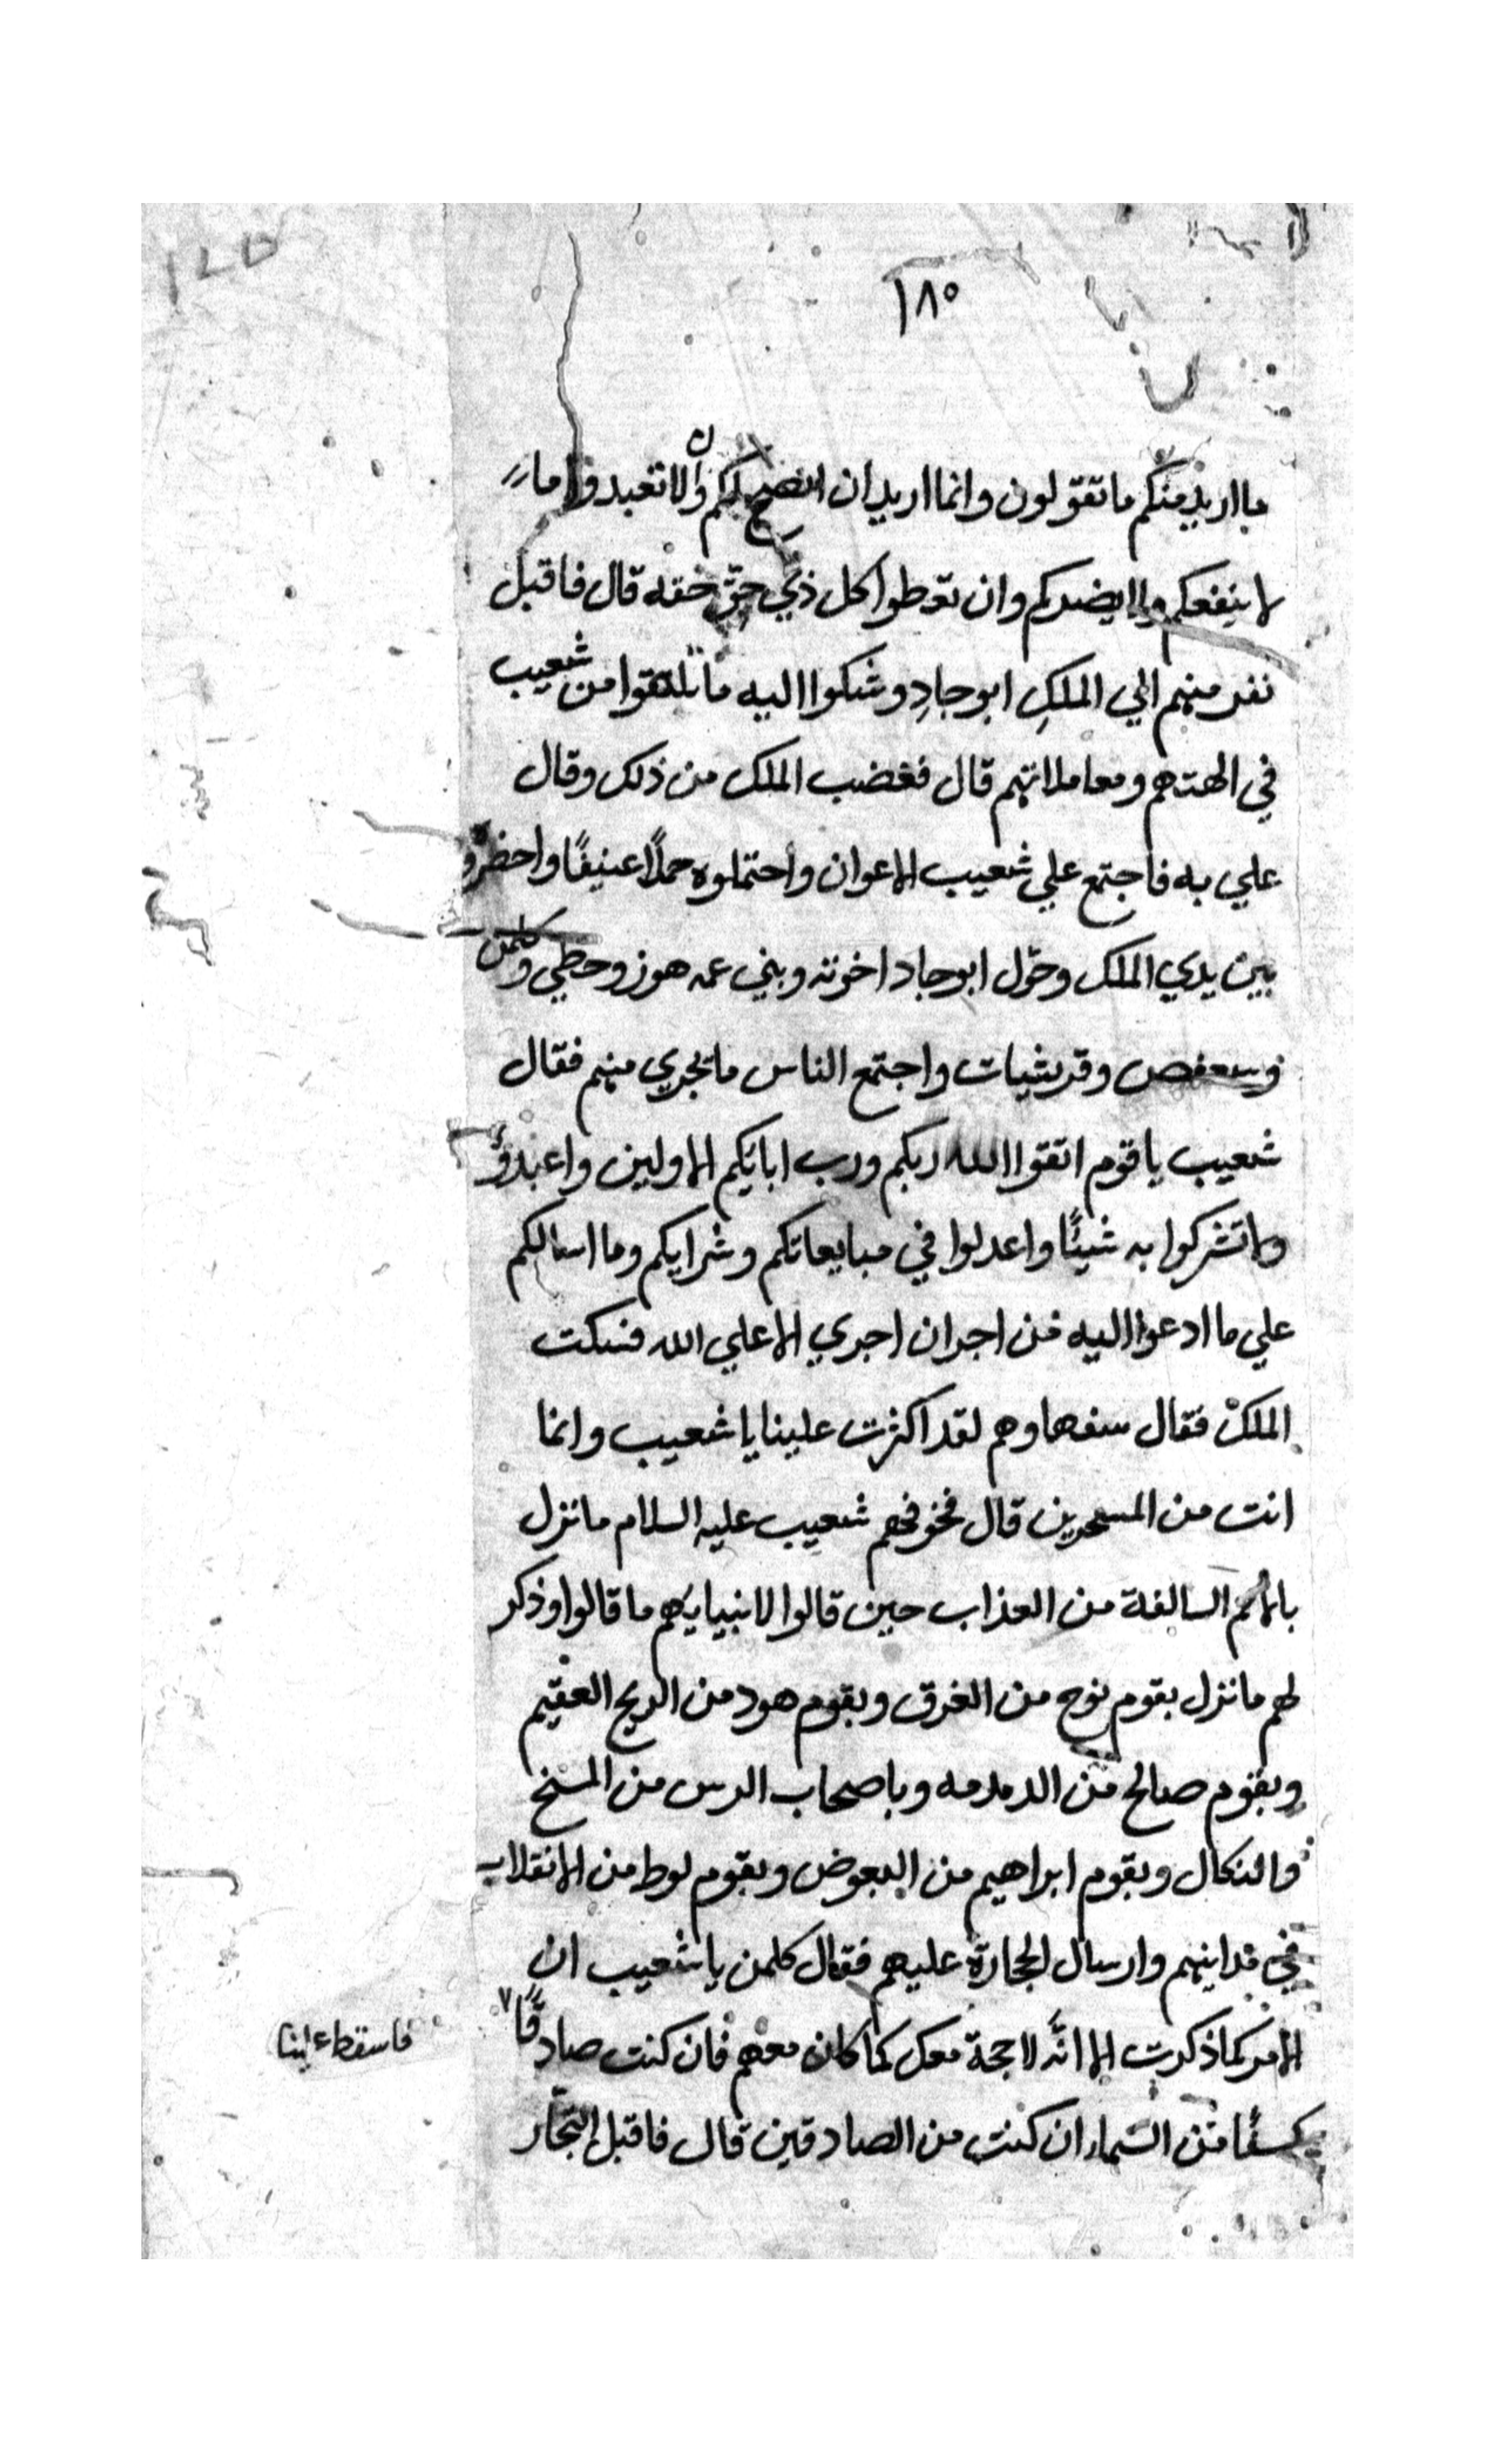 ١٨٥
ما اريد منكم ما تقولون وانما اريد ان انصح لكم وان لا تعبدوا ما
لا ينفعكم ولا يضركم وان تعطوا كل ذي حق حقه قال فاقبل
نفر منهم الي الملكِ ابو جادِ وشكوا اليه ما تلقوا من شعيب
في الهتهم ومعاملاتهم قال فغضب الملك من ذلك وقال
علي به فاجتمع علي شعيب الاعوان واحتملوه حملًا عنيفًا واحضروه
بين يدي الملك وحول ابو جاد اخوته وبني عمه هوز وحطي وكلمن
وسعفص وقرشيات واجتمع الناس ما يجري منهم فقال
شعيب يا قوم اتقوا الله ربكم ورب ابائكم الاولين واعبدوه
ولا تشركوا به شيئًا واعدلوا في مبايعاتكم وشرايكم وما اسالكم
علي ما ادعوا اليه من اجر ان اجري الا علي الله فسكت
الملك فقال سفهاوهم لقد اكثرت علينا يا شعيب وانما
انت من المسحرين قال فخوفهم شعيب عليه السلام ما نزل
بالامم السالفة من العذاب حين قالوا لانبيايهم ما قالوا وذكر
لهم ما نزل بقوم نوح من الغرق وبقوم هود من الريح العقيم
وبقوم صالح من الدمدمه وباصحاب الرس من المسخ
والنكال وبقوم ابراهيم من البعوض وبقوم لوط من الانقلاب
في مداينهم وارسال الحجارة عليهم فقال كلمن يا شعيب ان
الامر كما ذكرت الا انَّه لا حجة معك كما كان معهم فان كنت صادقًا
فاسقط علينا
كسفًا من السماء ان كنت من الصادقين قال فاقبل التجار